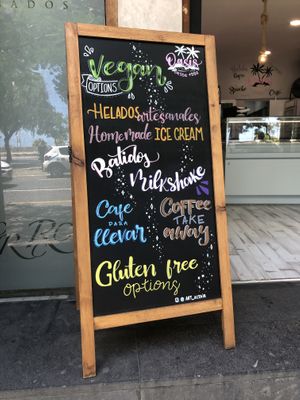 Vegan
OPTIONS
Oasis
HELADOS artesanales
Homemade ICE CREAM
Batidos
Milkshake
Cafe
PARA
llevar
COFFEE
TAKE
away
Gluten free
options